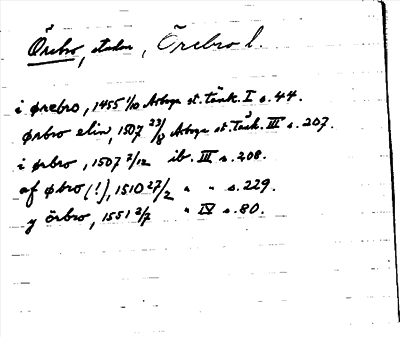 Örebro, staden, Örebro l.
i ørebro, 1455 1/10 Arboga st. tänk. I s. 44.
ørbro elin, 1507 23/8 Arboga st. Tänk. III s. 207.
i ørbro, 1507 2/12 ib. III s. 208.
af øbro (!), 1510 27/2 " " s. 229.
y örbro, 1551 2/7 " IV s. 80.